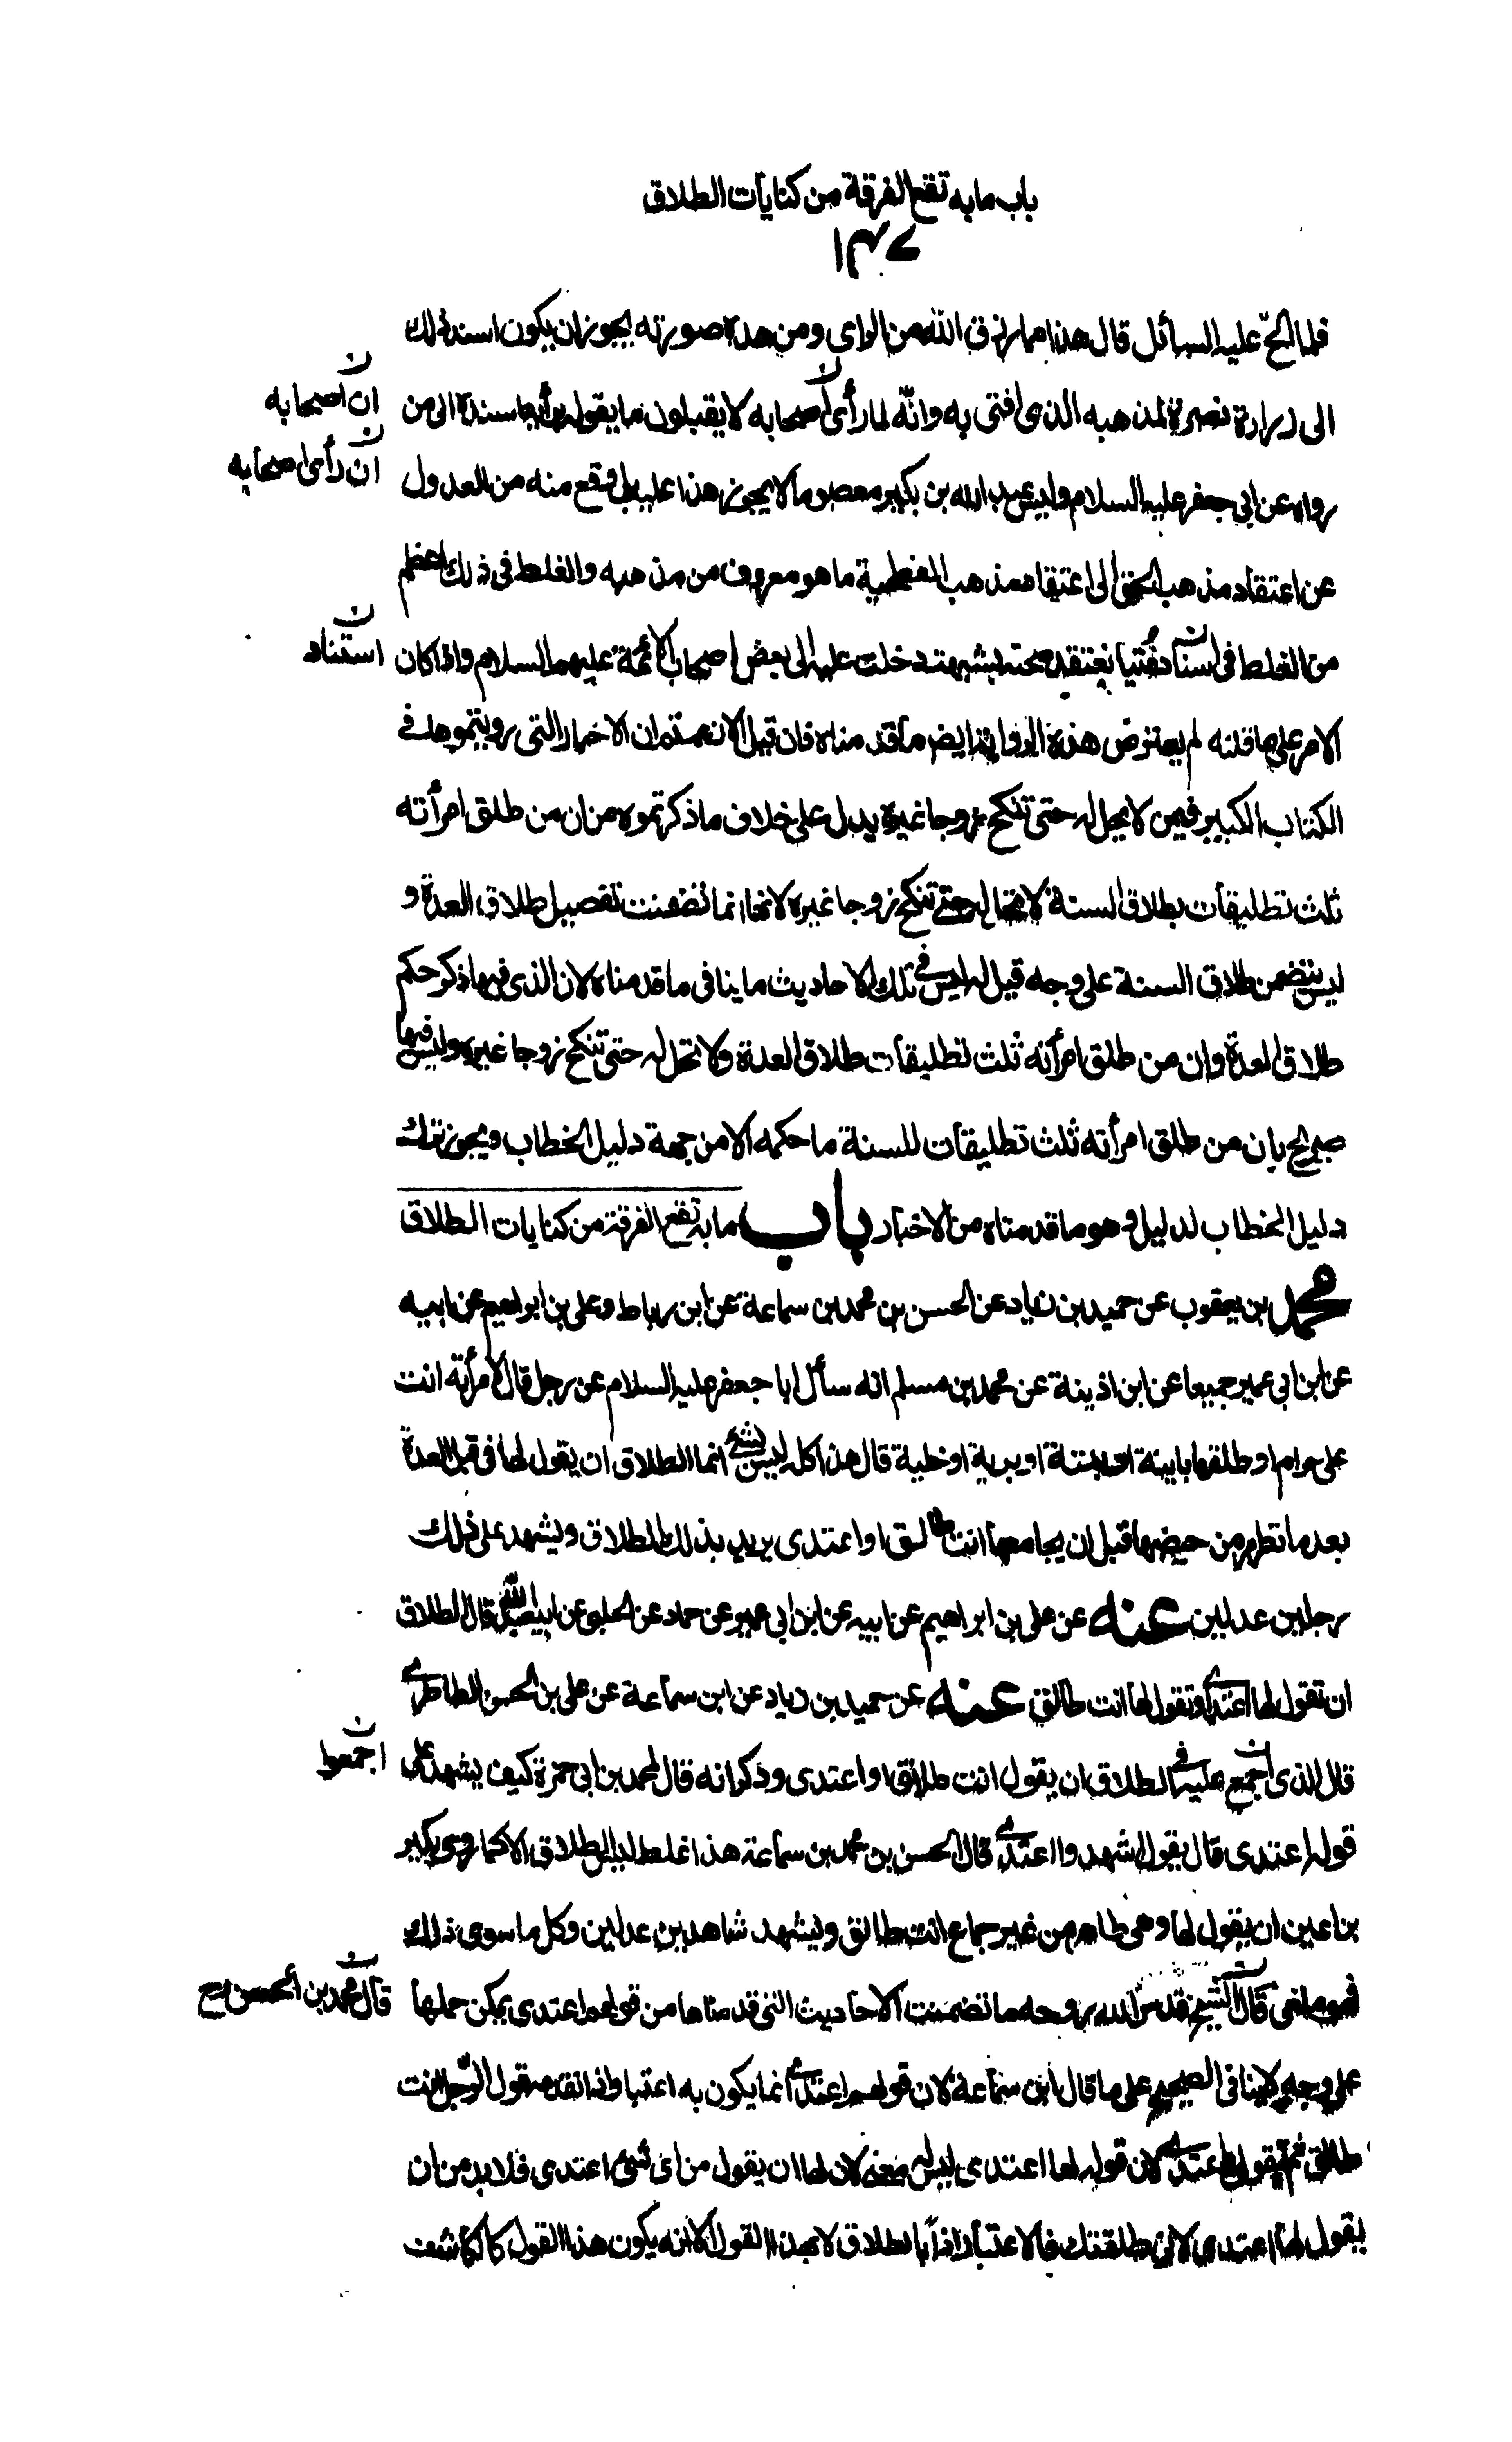 باب ما به تقع الفرقة من كنايات الطلاق
١٣٧
فلما الحّ عليه السائل قال هذا مما رزق الله من الراى ومن هذه صورته يجوز ان يكون اسند ذلك
الى زرارة نصرة لمذهبه الذى افتى به وانّه لما رأى اصحابه لا يقبلون ما يقوله برأيه اسنده الى من
ان اصحابه
ان رأى اصحابه
رواه عن ابى جعفر عليه السلام وليس عبد الله بن بكير معصوما لا يجوز هذا عليه بل وقع منه من العدول
عن اعتقاد مذهب الحق الى اعتقاد مذهب الفطحية ما هو معروف من مذهبه والغلط فى ذلك اعظم
من الغلط فى اسناد فُتيا يعتقد صحته لشبهة دخلت عليه الى بعض اصحاب الائمة عليهم السلام واذا كان
استناد
الامر على ما قلنه لم يعترض هذه الرواية ايضا ما قدمناه فان قيل الان عمتم ان الاخبار التى رويتموها فى
الكتاب الكبير فيمن لا يحل له حتى تنكح زوجا غيره يدل على خلاف ما ذكرتموه من ان من طلق امرأته
ثلث تطليقات بطلاق السنة لا تحل له حتى تنكح زوجا غيره لانها انما تضمنت تفصيل طلاق العدة و
ليس يتضمن طلاق السنة على وجه قيل له ليس فى تلك الاحاديث ما ينافى ما قدمناه لان الذى فيها ذكر حكم
طلاق العدة وان من طلق امرأته ثلث تطليقات طلاق العدة ولا تحل له حتى تنكح زوجا غيره وليس فيها
صريح بان من طلق امرأته ثلث تطليقات للسنة ما حكمه الا من جهة دليل الخطاب ويجوز ترك
دليل الخطاب لدليل وهو ما قدمناه من الاخبار باب ما به تقع الفرقة من كنايات الطلاق
محمد بن يعقوب عن حميد بن زياد عن الحسن بن محمد بن سماعة عن ابن رباط وعلى بن ابراهيم عن ابيه
عن ابن ابى عمير جميعا عن ابن اذينة عن محمد بن مسلم انه سأل ابا جعفر عليه السلام عن رجل قال لامرأته انت
على حرام او طلقها باينة او بتة او برية او خلية قال هذا كله ليس بشئ انما الطلاق ان يقول لها فى قبل العدة
بعد ما تطهر من حيضها قبل ان يجامعها انت طالق او اعتدى يريد بذلك الطلاق ويشهد على ذلك
رجلين عدلين عنه عن على بن ابراهيم عن ابيه عن ابن ابى عمير عن حماد عن الحلبى عن ابيعبد الله قال الطلاق
ان تقول لها اعتدى او تقول لها انت طالق عنه عن حميد بن زياد عن ابن سماعة عن على بن الحسن الطاطرى
قال الذى اجمع عليه فى الطلاق ان يقول انت طالق او اعتدى وذكر انه قال لمحمد بن ابى حمزة كيف يشهد على
اجمعوا
قوله اعتدى قال يقول اشهدوا اعتدى قال الحسن بن محمد بن سماعة هذا غلط ليس الطلاق الا كما روى بكير
بن اعين ان يقول لها وهى طاهر من غير جماع انت طالق ويشهد شاهدين عدلين وكل ما سوى ذلك
فهو ملغى قال الشيخ قدس الله روحه ما تضمنت الاحاديث التى قدمناها من قولهم اعتدى يمكن حملها
قال محمد بن الحسن رح
على وجه لا ينافى الصحيح على ما قال ابن سماعة لان قولهم اعتدى انما يكون به اعتبار اذا تقدمه قول الرجل انت
طالق ثم يقول اعتدى لان قوله لها اعتدى ليس له معنى لان لها ان يقول من اى شئ اعتدى فلا بد من ان
يقول لها اعتدى لانى طلقتك فالاعتبار اذاً بالطلاق لا بهذا القول الا انه يكون هذا القول كالكاشف